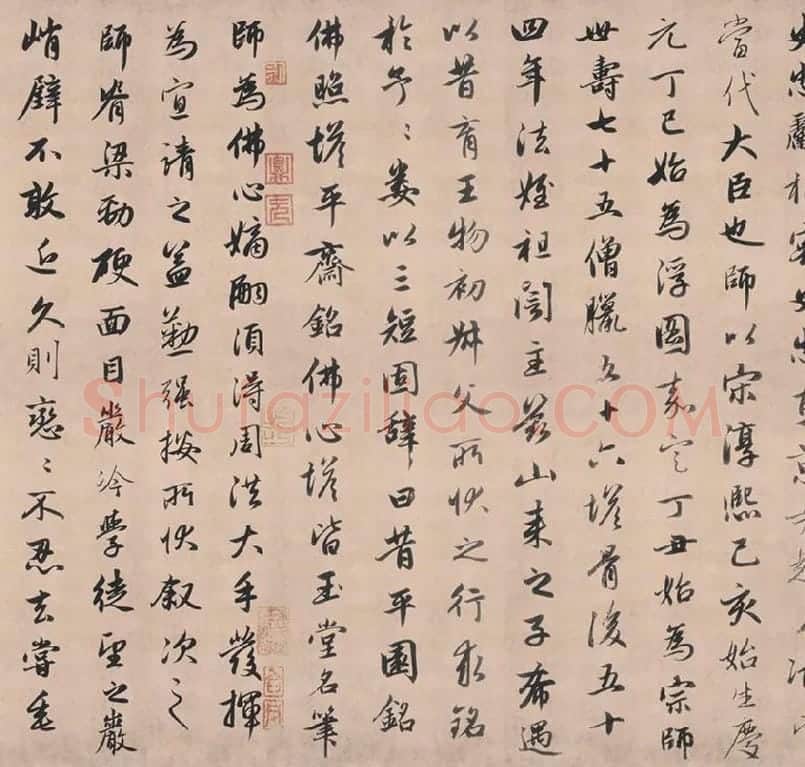 當代大臣也師以宋淳熙己亥始生慶
元丁巳始為浮圖嘉定丁丑始為宗師
世壽七十五僧臘五十六塔骨後五十
四年法姪祖誾主蔣山来之子希遇
以昔育王物初叔父所狀之行求銘
於予〻婁以三短固辭曰昔平園銘
佛照塔平齋銘佛心塔皆玉堂名筆
師為佛心嫡嗣須得周洪大手發揮
為宣請之益勤强按所狀叙次之
師脊梁勁硬面目嚴冷學徒望之巖
峭壁不敢近久則戀〻不忍去嘗垂
Shufaziliao.COM